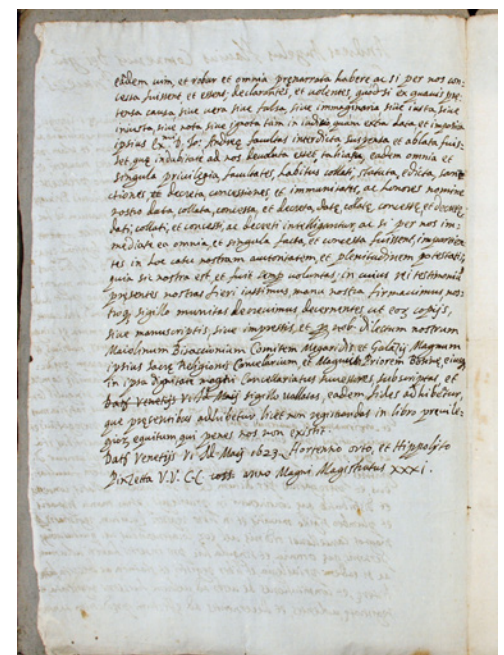 eadem vim, et robur et omnia prenarrata habere ac si per nos con-
cessa fuissent, et essent, declarantes, et volentes, quod si ex quavis pre-
tensa causa, sive vera sive falsa, sive immaginaria sive iusta, sive
iniusta, sive nota sive ignota tam in iudicio quam extra data et
ipsius D. Io: Andree facultas interdicta suspensa et ablata fuis-
set que indubitate ad nos devoluta esset, taliter eadem omnia et
singula privilegia, facultates, habitus collati, statuta, edicta, san-
ctiones, et decreta, concessiones et immunitates, ac honores nomine
nostro data, collata, concessa, et decreta, date, collate, concesse, et decrete
dati, collati, et concessi, ac decreti intelligantur, ac si per nos im-
mediate ea omnia, et singula facta, et concessa fuissent, impartien-
tes in hoc casu nostram auctoritatem, et plenitudinem potestatis,
quia sic nostra est, et fuit semp voluntas, in cuius rei testimoniū
presentes nostras fieri iussimus, manu nostra firmavimus nos-
troq sigillo munitas decrevimus decernentes ut eoʒ copijs,
sive manuscriptis, sive impressis, et dilectum nostrum
Maiolinum Bisaccionium Comitem et Magnum
ipsius Sacre Religionis Cancelarium et Priorem eiusq
in ipsa dignitate magni Cancellariatus successores, subscriptas, et
sigillo vallatas, eadem fides adhibeatur,
que presentibus adhibetur licet non registrandas in libro previle-
gioʒ equitum qui penes nos non existit.
Datʒ Venetijs Vi Maij 1623. et Hippolyto
V.V. C.C. anno Magni Magistratus XXXI.